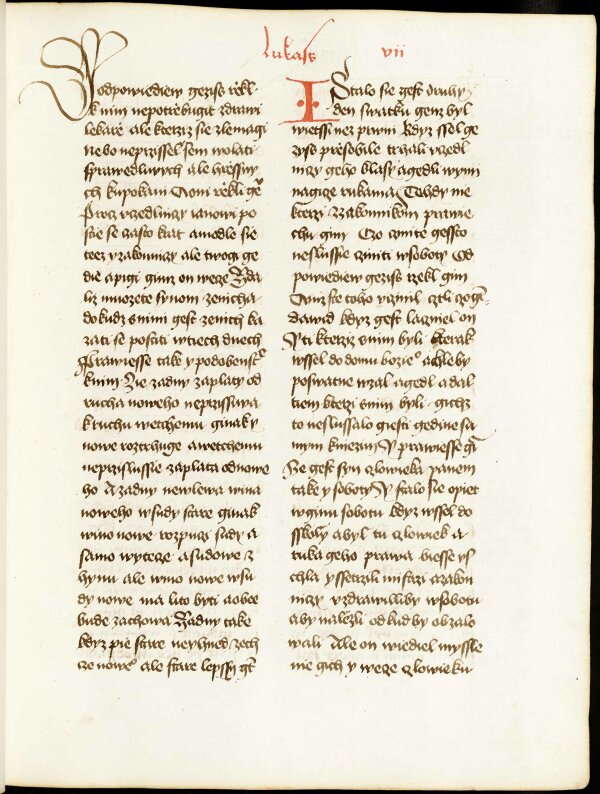 Lukass vii
Aodpowiediew gezissː rzekl
k nim nepotrzebugit zdrawi
lekarze ale kterziz sie zlemagi
nebo neprzissel sem wolati
sprawedlnych ale hrzessny
ch ku pokani A oni rzekli gē
Procz vczedlnizy ianowi po
stie se czasto krat a modle sie
teez y zakonnizy ale twogi ge
die a pigi gimz on weze Zda
liz mozete synom zenicha
dokudz s nimi gest zenich ka
zati se postiti w tiech dnech
Prawiesse take y podobenstˀ
k nim Ze zadny zaplaty od
rucha noweho neprzissiwa
k ruchu wetchemu ginak y
nowe roztrhuge a wetchemu
neprzislussie zaplata od nowe
ho A zadny newlewa wina
noweho w sudy stare ginak
wino nowe rozpuczi sudy a
samo wyteze a sudowe z
hynu ale wino nowe w su
dy nowe ma lito byti a obce
bude zachowa Zadny take
kdyz pie stare neyhned zech
cze noweˀ ale stare lepssy gē
I Stalo sie gest druhy
den swatku genz byl
wietssi nez prwni kdyz ssel ge
zyss przes obile trhali vczedl
nizy geho klasy a gedli wymi
nagize rukama Tehdy nie
kterzi z zakonnikow prawie
chu gim Czo czinite gessto
neslussie cziniti w soboty Od
powiediew gezissː rzekl gim
Aniz ste toho vczinil cztli czo gē
dawid kdyz gest laczniel on
y ti kterzi s nim byli kterak
wssel do domu bozieˀ a chleby
poswatne wzal a gedl a dal
tiem kterzi s nim byli gichz
to neslussalo giesti gedine sa
mym kniezim y prawiesse gī
Ze gest syn czlowieka panem
take y soboty y stalo sie opiet
w ginu sobotu kdyz wssel do
sskoly a byl tu czlowiek a
ruka geho prawa biesse vs
chla y ssetrzili mistrzi a zakon
nizy vzdrawilliby w sobotu
aby nalezli odkud by obzalo
wali Ale on wiediel myssle
nie gich y weze czlowieku